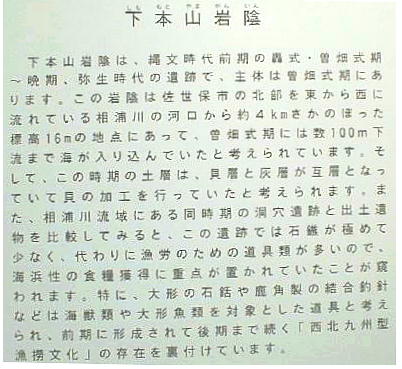 しも もと やま がん いん
下本山岩陰
下本山岩陰は、縄文時代前期の轟式・曽畑式期
～晩期、弥生時代の遺跡で、主体は曽畑式期にあ
ります。この岩陰は佐世保市の北部を東から西に
流れている相浦川の河口から約4kmさかのぼった
標高16mの地点にあって、曽畑式期には数100m下
流まで海が入り込んでいたと考えられています。そ
して、この時期の土層は、貝層と灰層が互層となっ
ていて貝の加工を行っていたと考えられます。ま
た、相浦川流域にある同時期の洞穴遺跡と出土遺
物を比較してみると、この遺跡では石鏃が極めて
少なく、代わりに漁労のための道具類が多いので、
海浜性の食糧獲得に重点が置かれていたことが窺
われます。特に、大形の石銛や鹿角製の結合釣針
などは海獣類や大形魚類を対象とした道具と考え
られ、前期に形成されて後期まで続く「西北九州型
漁撈文化」の存在を裏付けています。